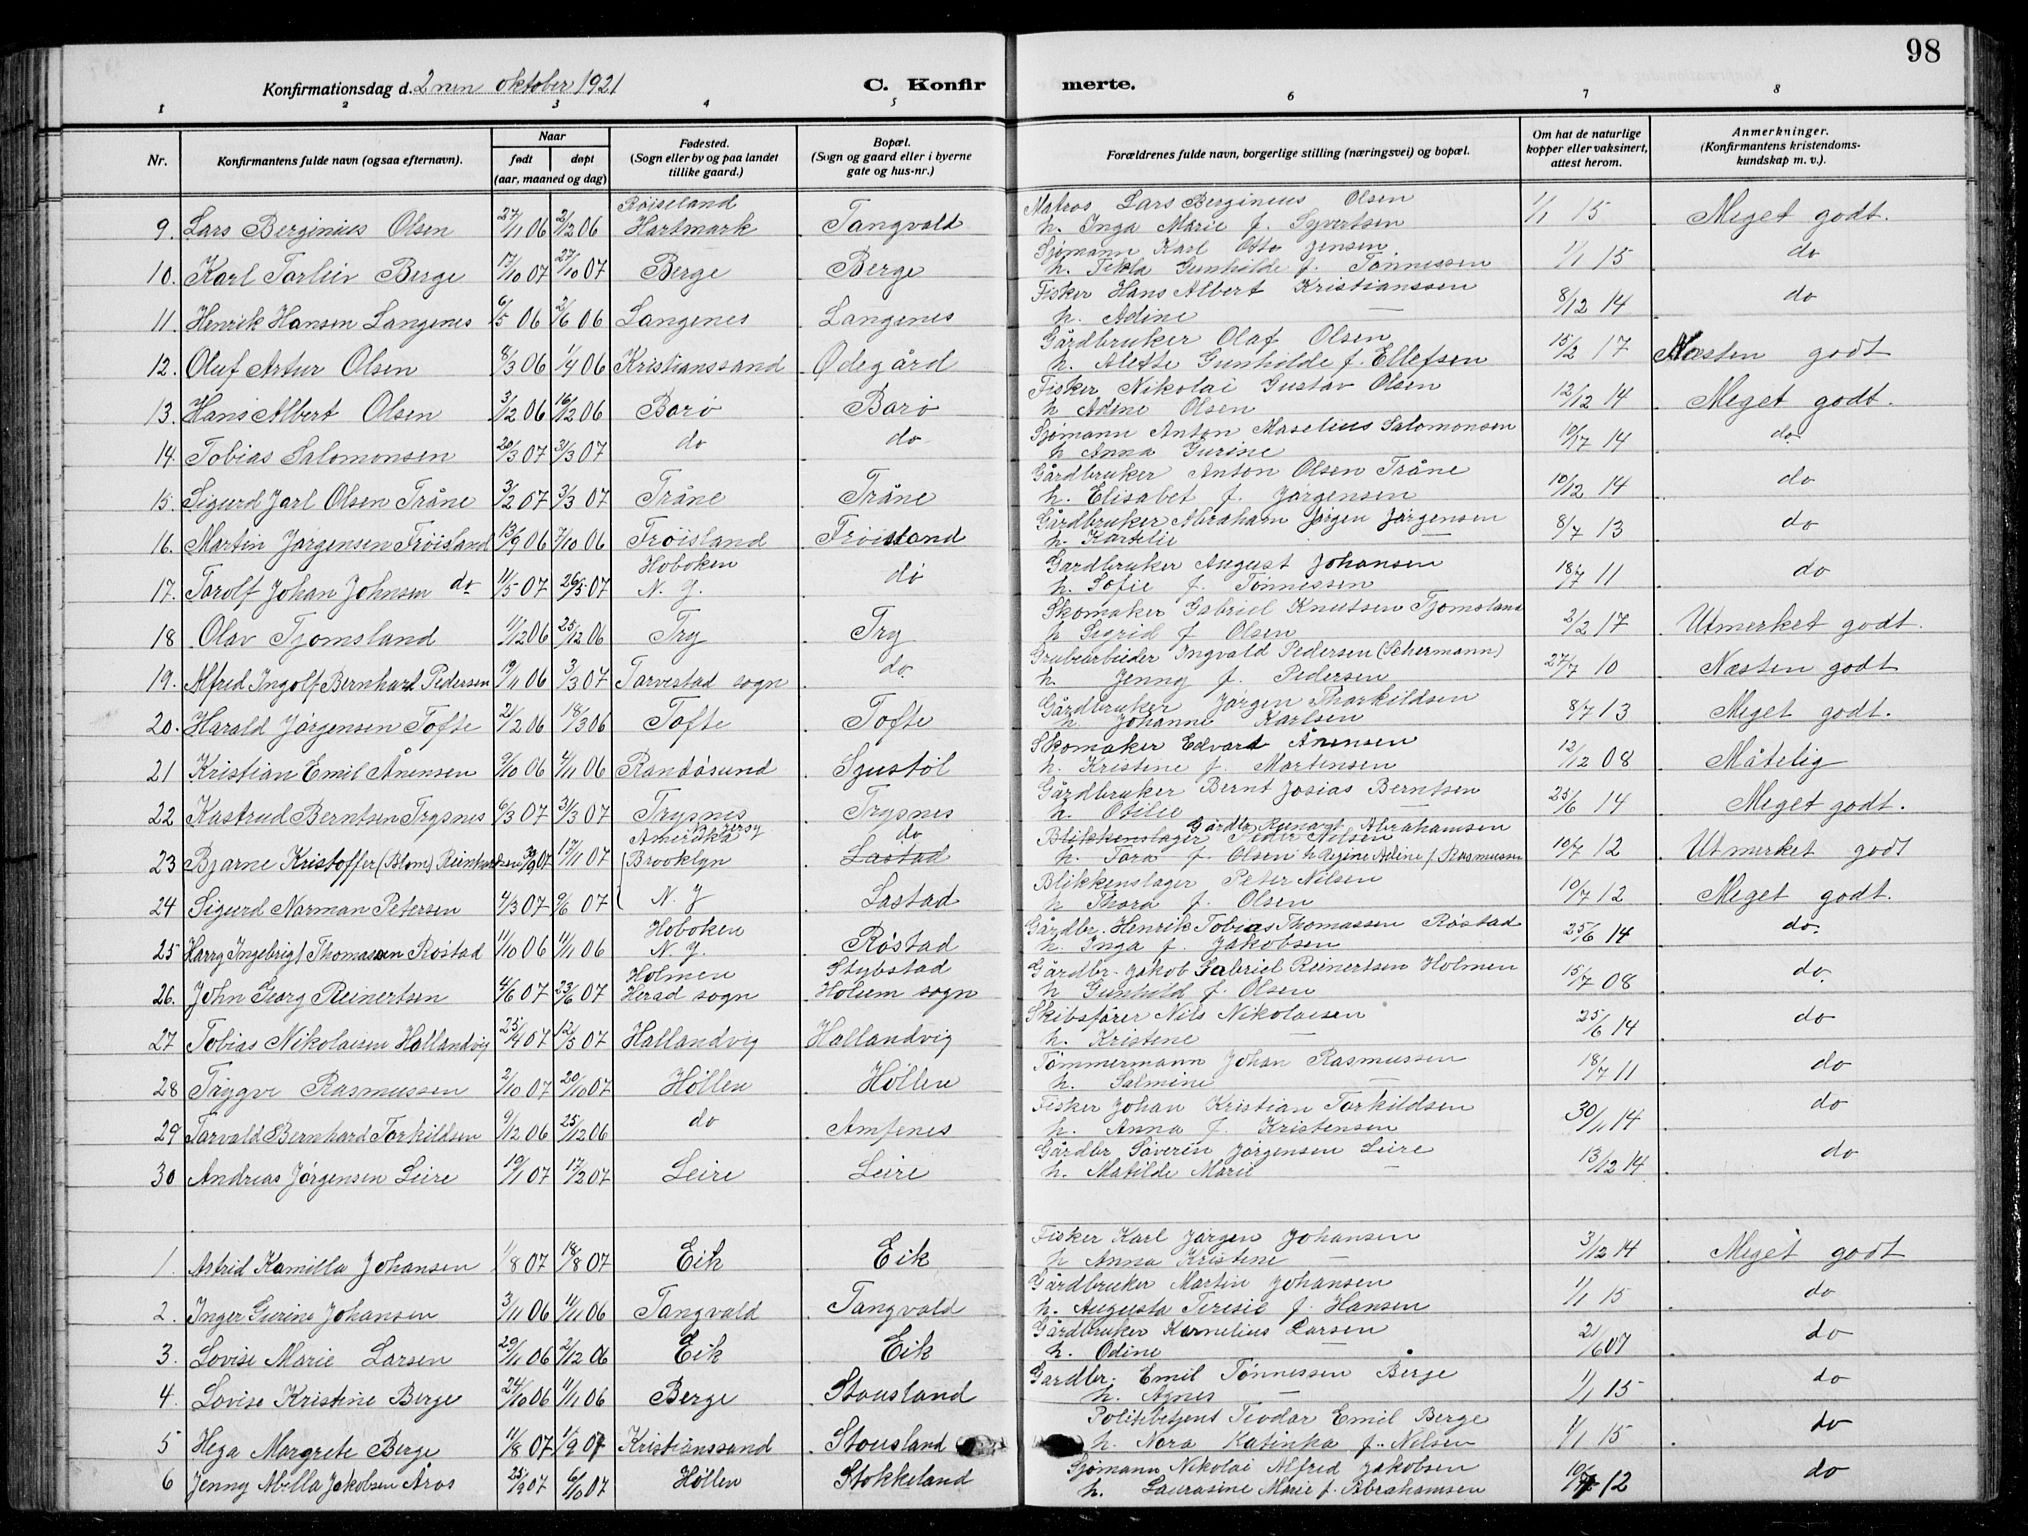 98
Konfirmationsdag d. 2nen oktober 1921
C. Konfirmerte.
1 2 3 4 5 6 7 8
Nr.
Konfirmantens fulde navn (ogsaa efternavn).
Naar
født
døpt
(aar, maaned og dag)
Fødested.
(Sogn eller by og paa landet
tillike gaard.)
Bopæl.
(Sogn og gaard eller i byerne
gate og hus-nr.)
Forældrenes fulde navn, borgerlige stilling (næringsvei) og bopæl.
Om hat de naturlige
kopper eller vaksinert,
attest herom.
Anmerkninger.
(Konfirmantens kristendoms-
kundskap m. v.).
Røiseland Matros Lars Berginius Olsen
9. Lars Berginius Olsen 27/11 06 2/12 06 Hartmark Tangvald h. Inga Marie f. Syvertsen 1/1 15 Meget godt.
Sjømann Karl Otto Jensen
10. Karl Torleiv Berge 17/10 07 27/10 07 Berge Berge h. Tekla Gunhilde f. Tønnessen 1/1 15 do
Fisker Hans Albert Kristianssen
11. Henrik Hansen Langenes 6/5 06 2/6 06 Langenes Langenes h. Adine — 8/12 14 do
Gårdbruker Olaf Olsen
12. Oluf Artur Olsen 8/3 06 1/4 06 Kristianssand Ødegård h. Alette Gunhilde f. Ellefsen 15/2 17 Næsten godt
Fisker Nikolai Gustav Olsen
13. Hans Albert Olsen 3/12 06 16/12 06 Borø Borø h Adine Olsen 12/12 14 Meget godt.
Sjømann Anton Maselius Salomonsen
14. Tobias Salomonsen 20/3 07 31/3 07 do do h Anna Gurine 10/17 14 do
Gårdbruker Anton Olsen Tråne
15. Sigurd Jarl Olsen Tråne 3/2 07 3/3 07 Tråne Tråne h. Elisabet f. Jørgensen 10/12 14 do
Gårdbruker Abraham Jørgen Jørgensen
16. Martin Jørgensen Frøisland 13/9 06 7/10 06 Frøisland Frøisland h. — 8/7 13 do
Hoboken Gårdbruker August Johansen
17. Torolf Johan Johnsen do 11/5 07 26/5 07 N. J. do h. Sofie f. Tønnissen 18/7 11 do
Skomaker Gabriel Knutsen Tjomsland
18 Olav Tjomsland 11/12 06 25/12 06 Try Try h Sigrid f Olsen 2/2 17 Utmerket godt.
Grubearbeider Ingvald Pedersen (Schermann)
19. Alfred Ingolf Bernhart Pedersen 19/11 06 3/3 07 Torvestad sogn do h. Jenny f. Pedersen 27/7 10 Næsten godt
Gårdbruker Jørgen Thorkildsen
20. Harald Jørgensen Tofte 21/2 06 18/3 06 Tofte Tofte h Johanne Karlsen 8/7 13 Meget godt.
Skomaker Edvard Ånensen
21 Kristian Emil Ånensen 9/10 06 4/11 06 Randøsund Sjustøl h. Kristene f. Martensen 12/12 08 Måtelig
Gårdbruker Bernt Josias Berntsen
22 Kastrud Berntsen Trysnes 6/3 07 31/3 07 Trysnes Trysnes h. Otilie — 25/6 14 Meget godt.
Amerika do Blikkenslager Peder Nilsen Gårdbr. Reinart Abrahamsen
23 Bjarne Kristoffer (Blom) Reinhardsen 30/9 07 17/11 07 Brooklyn Lastad h. Tora f. Olsen h Regine Adine f Rasmussen 10/7 12 Utmerket godt
Blikkenslager Peter Nilsen
24 Sigurd Norman Petersen 4/3 07 9/6 07 N. J Lastad h Thora f. Olsen 10/7 12 Meget godt.
Hoboken Gårdbr. Henrik Tobias Thomassen Røstad
25 Harry Ingebrigt Thomassen Røstad 11/10 06 11/11 06 N. J. Røstad h. Inga f. Jakobsen 25/6 14 do.
Holmen Stubstad Gårdbr. Jakob Gabriel Reinertsen Holmen
26. John Georg Reinertsen 4/6 07 23/6 07 Herad sogn Holum sogn h Gunhild f. Olsen 15/7 08 do
Skibsfører Nils Nikolaisen
27 Tobias Nikolaisen Hallandvig 25/4 07 12/5 07 Hallandvig Hallandvig h. Kristene — 25/6 14 do
Tømmermann Johan Rasmussen
28 Trygve Rasmussen 2/10 07 20/10 07 Høllen Høllen h. Salmine — 18/7 11 do
Fisker Johan Kristian Torkildsen
29 Torvald Bernhard Torkildsen 9/12 06 25/12 06 do Amfenes h. Anna f. Kristensen 30/1 14 do
Gårdbr Søverin Jørgensen Leire
30 Andreas Jørgensen Leire 19/1 07 17/2 07 Leire Leire h. Matilde Marie — 13/12 14 do
Fisker Karl Jørgen Johansen
1. Astrid Kamilla Johansen 1/8 07 18/8 07 Eik Eik h Anna Kristene — 3/12 14 Meget godt
Gårdbruker Martin Johansen
2. Inger Gurine Johansen 3/11 06 11/11 06 Tangvald Tangvald h. Augusta Teresie f. Hansen 1/1 15 do
Gårdbruker Kornelius Larsen
3. Lovise Marie Larsen 29/11 06 2/12 06 Eik Eik h. Odine 21/6 07 do
Gårdbr. Emil Tønnessen Berge
4. Lovise Kristine Berge 24/10 06 11/11 06 Berge Stousland h. Agnes — 1/1 15 do
Politibetjent Teodor Emil Berge
5 Hega Margrete Berge 11/8 07 1/9 07 Kristianssand Stousland h. Nora Katinka f. Nilsen 1/1 15 do
Sjømann Nikolai Alfred Jakobsen
6 Jenny Milla Jakobsen Åros 25/9 07 6/10 07 Høllen Stokkeland h. Laurasine Marie f. Abrahamsen 10/7 12 do